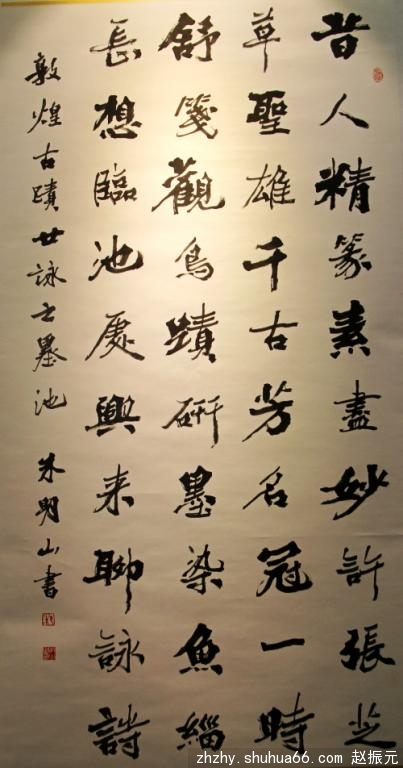 昔人精篆素盡妙許張芝
草聖雄千古芳名冠一時
舒箋觀鳥蹟研墨染魚緇
長想臨池處興来聊詠詩
敦煌古蹟廿詠之墨池 朱明山書
zhzhy.shuhua66.com 赵振元